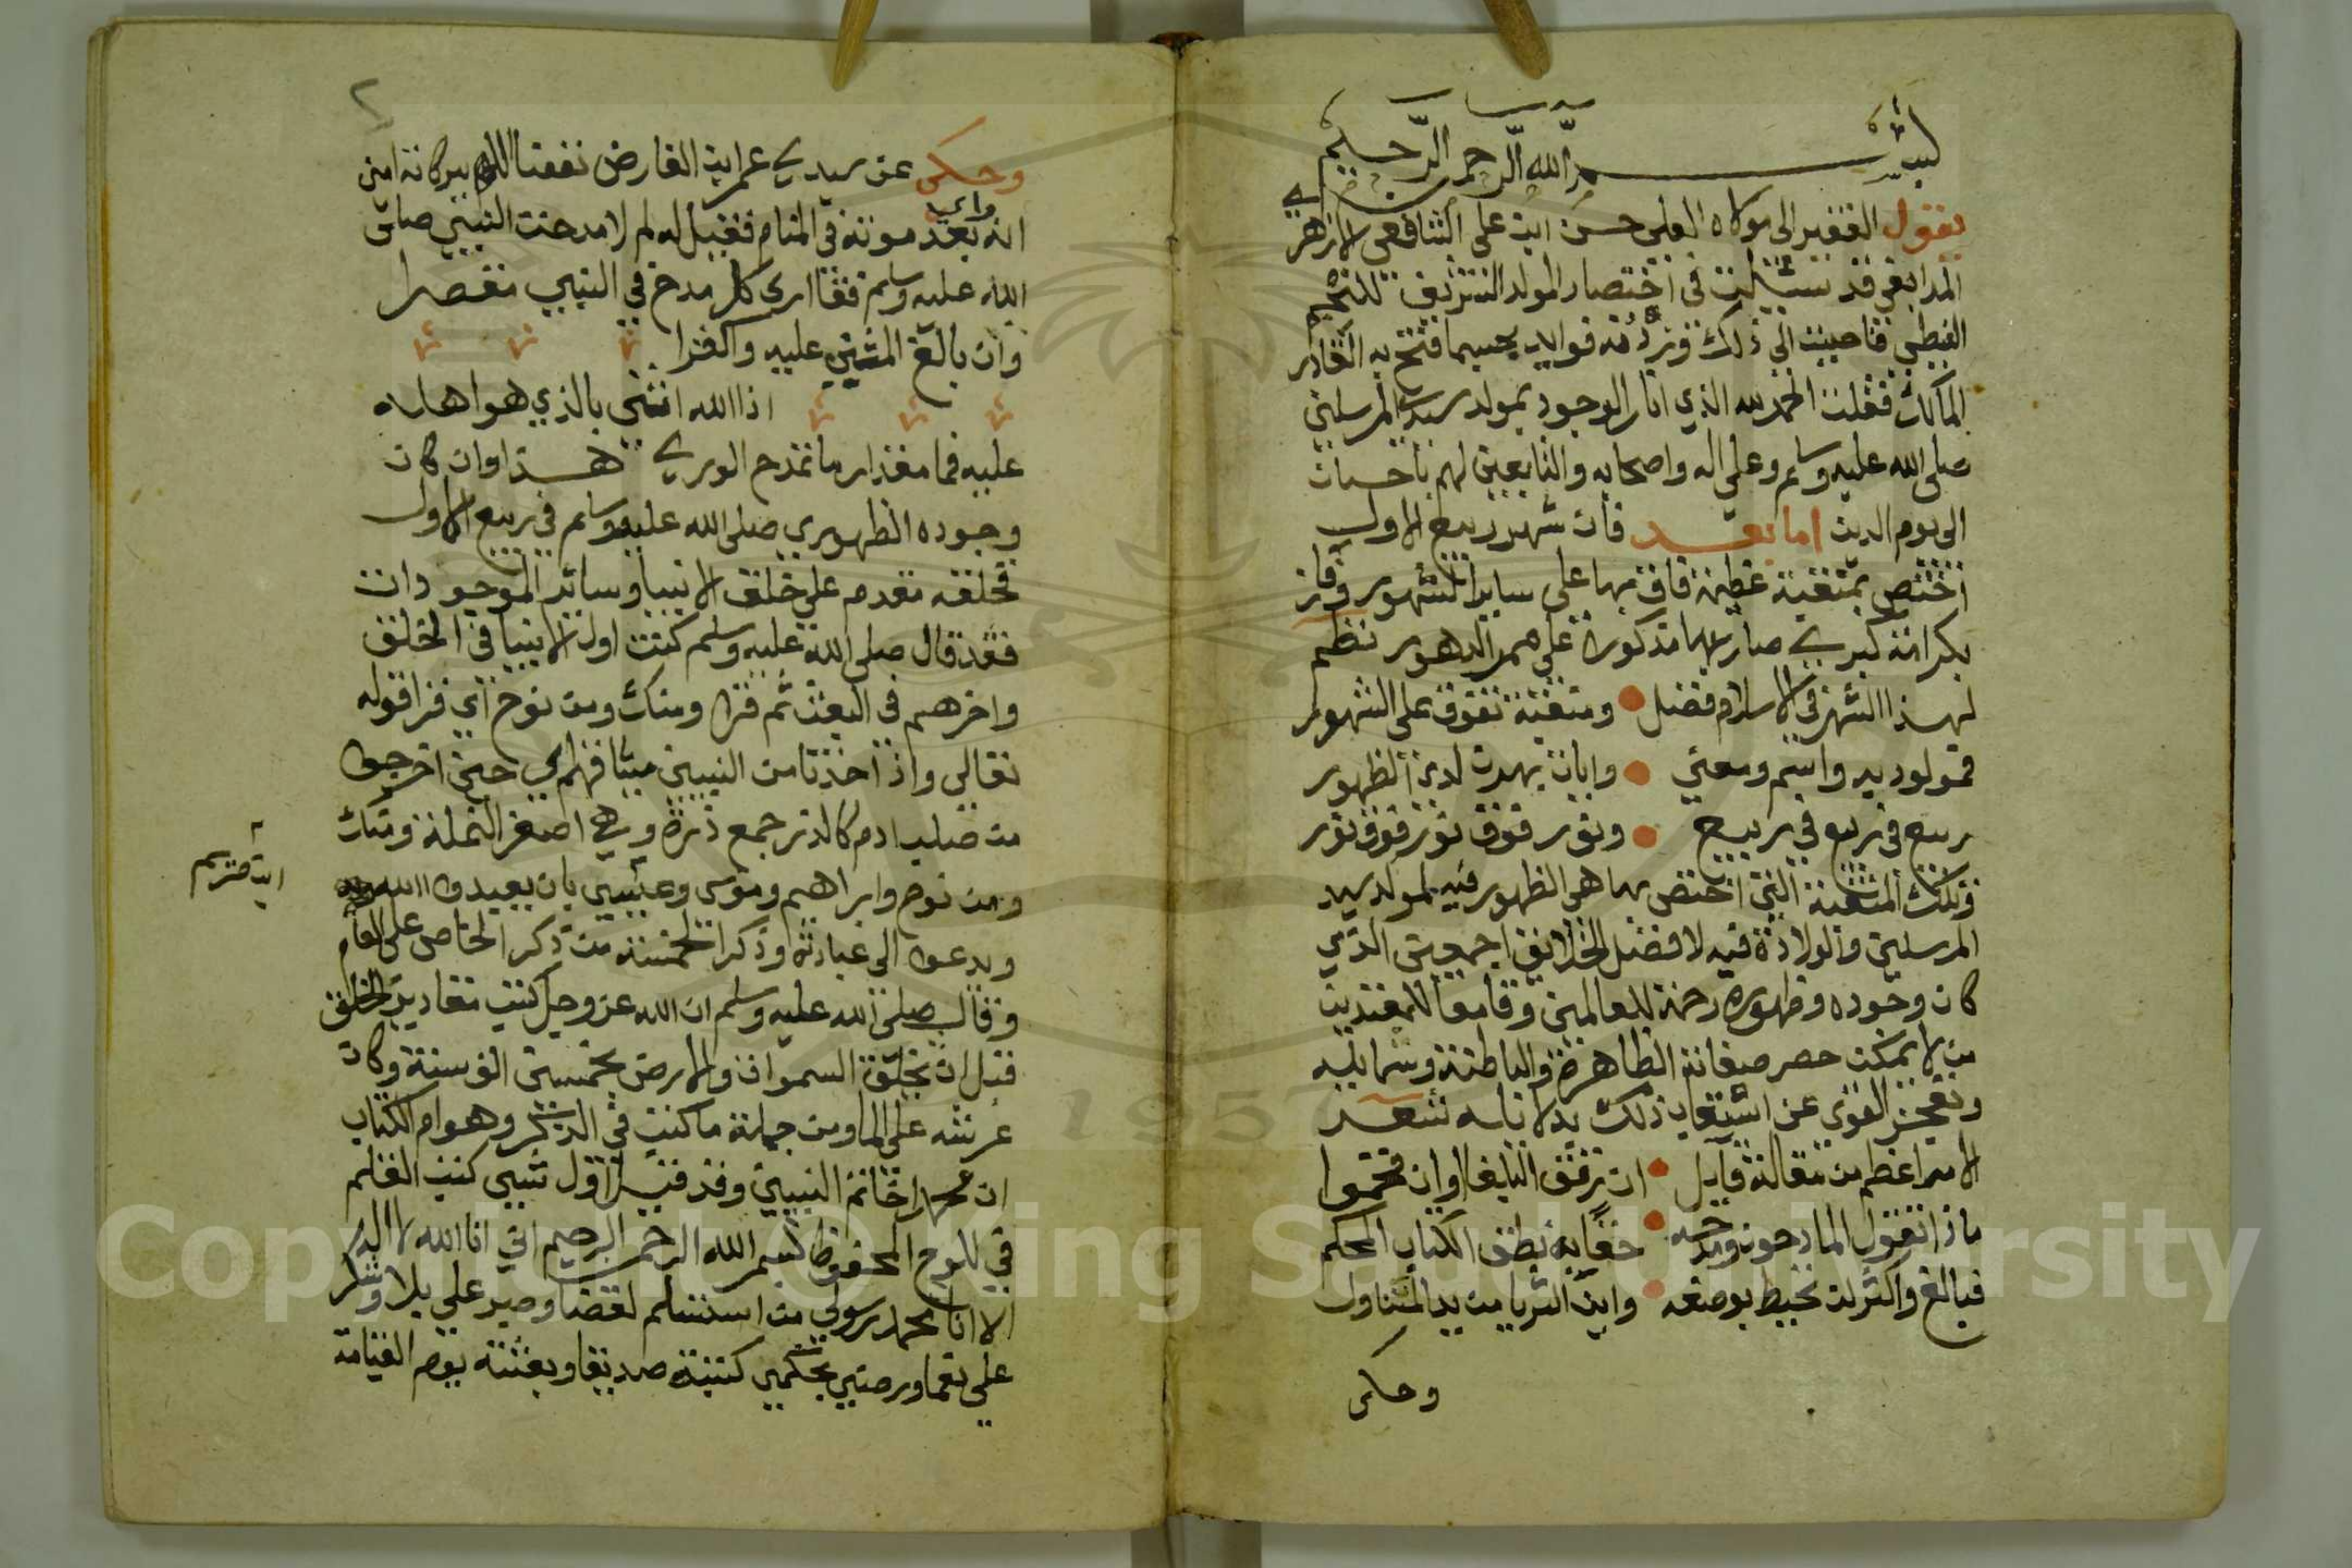 بسم الله الرحمن الرحيم
يقول الفقير الى مولاه العلي حسن ابن علي الشافعي الازهري
المدابغي قد سئيلت في اختصار المولد الشريف للنجم
الغيطي فاجبت الي ذلك وزدته فوايد بحسبما فتح به القادر
المالك فقلت الحمد لله الذي انار الوجود بمولد سيد المرسلين
صلى الله عليه وسلم وعلي اله واصحابه والتابعين لهم باحسان
الى يوم الدين اما بعد فان شهر ربيع الاول
اختص بمنقبة عظيمة فاق بها على ساير الشهور وفاز
بكرامة كبري صار بها مذكورا على ممر الدهور نظم
لهذا الشهر في الاسلام فضل ومنقبة تفوق على الشهور
فمولود به واسم ومعني وايات بهرت لدى الظهور
ربيع في ربيع في ربيع ونور فوق نور فوق نور
وتلك المنقبة التي اختص بها هي الظهور فيه لمولد سيد
المرسلين والولادة فيه لافضل الخلايق اجمعين الذي
كان وجوده وظهوره رحمة للعالمين وقامعا للمعتدين
من لا يمكن حصر صفاته الظاهرة والباطنة وشمايله
وتعجز القوي عن استيعاب ذلك بدلانايه شعر
الامر اعظم من مقالة قايل ان رقق البلغا او ان فخموا
ماذا تقول المادحون ومدحه حقا به نطق الكتاب المحكم
فبالغ واكثر لن تحيط بوصفه واين الثريا من يد المتناول
وحكى
٢
وحكى عن سيدي عمر ابن الفارض نفعنا الله ببركاته امين
انه راي بعد موته في المنام فقيل له لم لا مدحت النبي صلى
الله عليه وسلم فقا ارى كل مدح في النبي مقصرا
وان بالغ المثني عليه واكثرا
اذا الله اثنى بالذي هو اهله
عليه فما مقدار ما تمدح الوري هذا وان كان
وجوده الظهوري صلى الله عليه وسلم في ربيع الاول
فخلقه مقدم علي خلق الانبيا وسائر الموجودات
فقد قال صلى الله عليه وسلم كنت اول الانبيا في الخلق
واخرهم في البعث ثم قرا ومنك ومن نوح اي قرا قوله
تعالي واذ اخذنا من النبيين ميثاقهم اي حين اخرجوا
من صلب ادم كالذر جمع ذرة وهي اصغر النملة ومنك
ومن نوح وابراهيم وموسى وعيسي بان يعبدوا الله
ابن مريم
ويدعوا الى عبادته وذكر الخمسة من ذكر الخاص على العام
وقال صلى الله عليه وسلم ان الله عز وجل كتب مقادير الخلق
قبل ان يخلق السموات والارض بخمسين الف سنة وكان
عرشه على الما ومن جملة ما كتب في الذكر وهو ام الكتاب
ان محمدا خاتم النبيين وقد قيل اول شيي كتب القلم
في اللوح المحفوظ بسم الله الرحمن الرحيم اني انا الله لا اله
الا انا محمد رسولي من استسلم لقضا وصبر علي بلا وشكر
علي نعما ورضي بحكمي كتبته صديقا وبعثته يوم القيامة